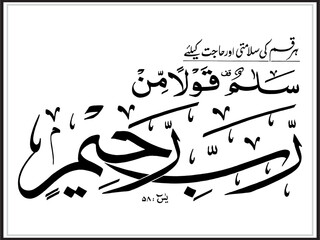 ہر قسم کی سلامتی اور حاجت کیلئے
سَلٰمٌ قف قَوْلًا مِّنْ
رَّبٍّ رَّحِيْمٍ
یٰسٓ: ۵۸